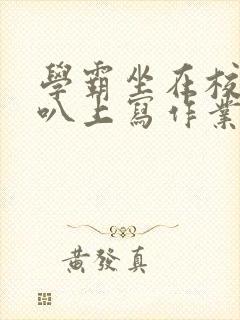 學霸坐在校
叭上寫作業
黃發真